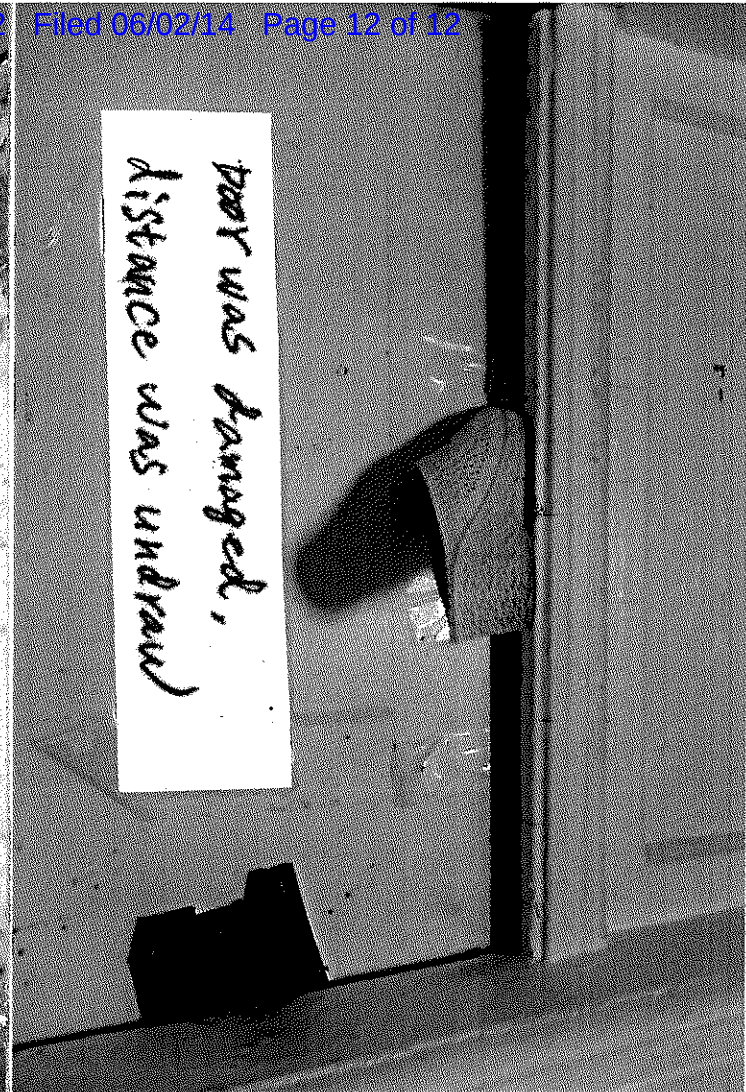 Filed 06/02/14 Page 12 of 12
Door was damaged,
distance was undraw